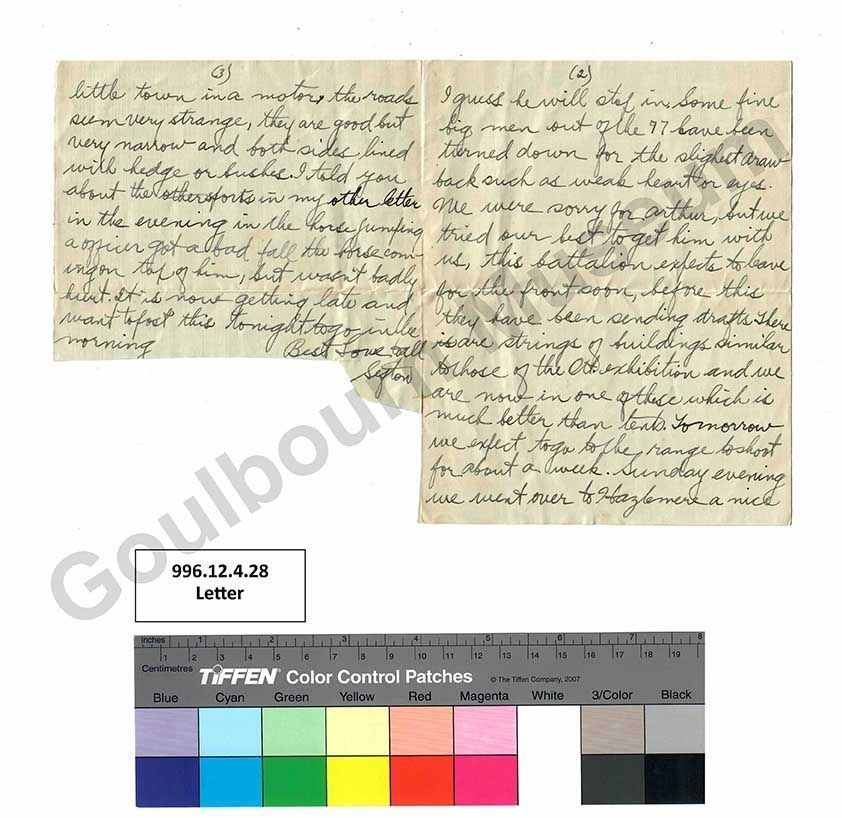 (2)
I guess he will stop in. Some fine
big men out of the 77 have been
turned down for the slighest draw
back such as weak heart or eyes.
We were sorry for arthur, but we
tried our best to get him with
us, this battalion expects to leave
for the front soon, before this
they have been sending drafts. There
is are strings of buildings similar
to those of the Ott. exhibition and we
are now in one of these which is
much better than tents. Tomorrow
we expect to go to the range to shoot
for about a week. Sunday evening
we went over to Hazlemere a nice
(3)
little town in a motor, the roads
seem very strange, they are good but
very narrow and both sides lined
with hedge or bushes. I told you
about the other sports in my other letter
in the evening in the horse jumping
a officer got a bad fall the horse com-
ing on top of him, but wasn't badly
hurt. It is now getting late and
want to post this tonight to go in the
morning
Best Love all
Sefton
Goulbourn Museum
996.12.4.28
Letter
Inches 1 2 3 4 5 6 7 8
Centimetres 1 2 3 4 5 6 7 8 9 10 11 12 13 14 15 16 17 18 19
TIFFEN Color Control Patches © The Tiffen Company, 2007
Blue Cyan Green Yellow Red Magenta White 3/Color Black